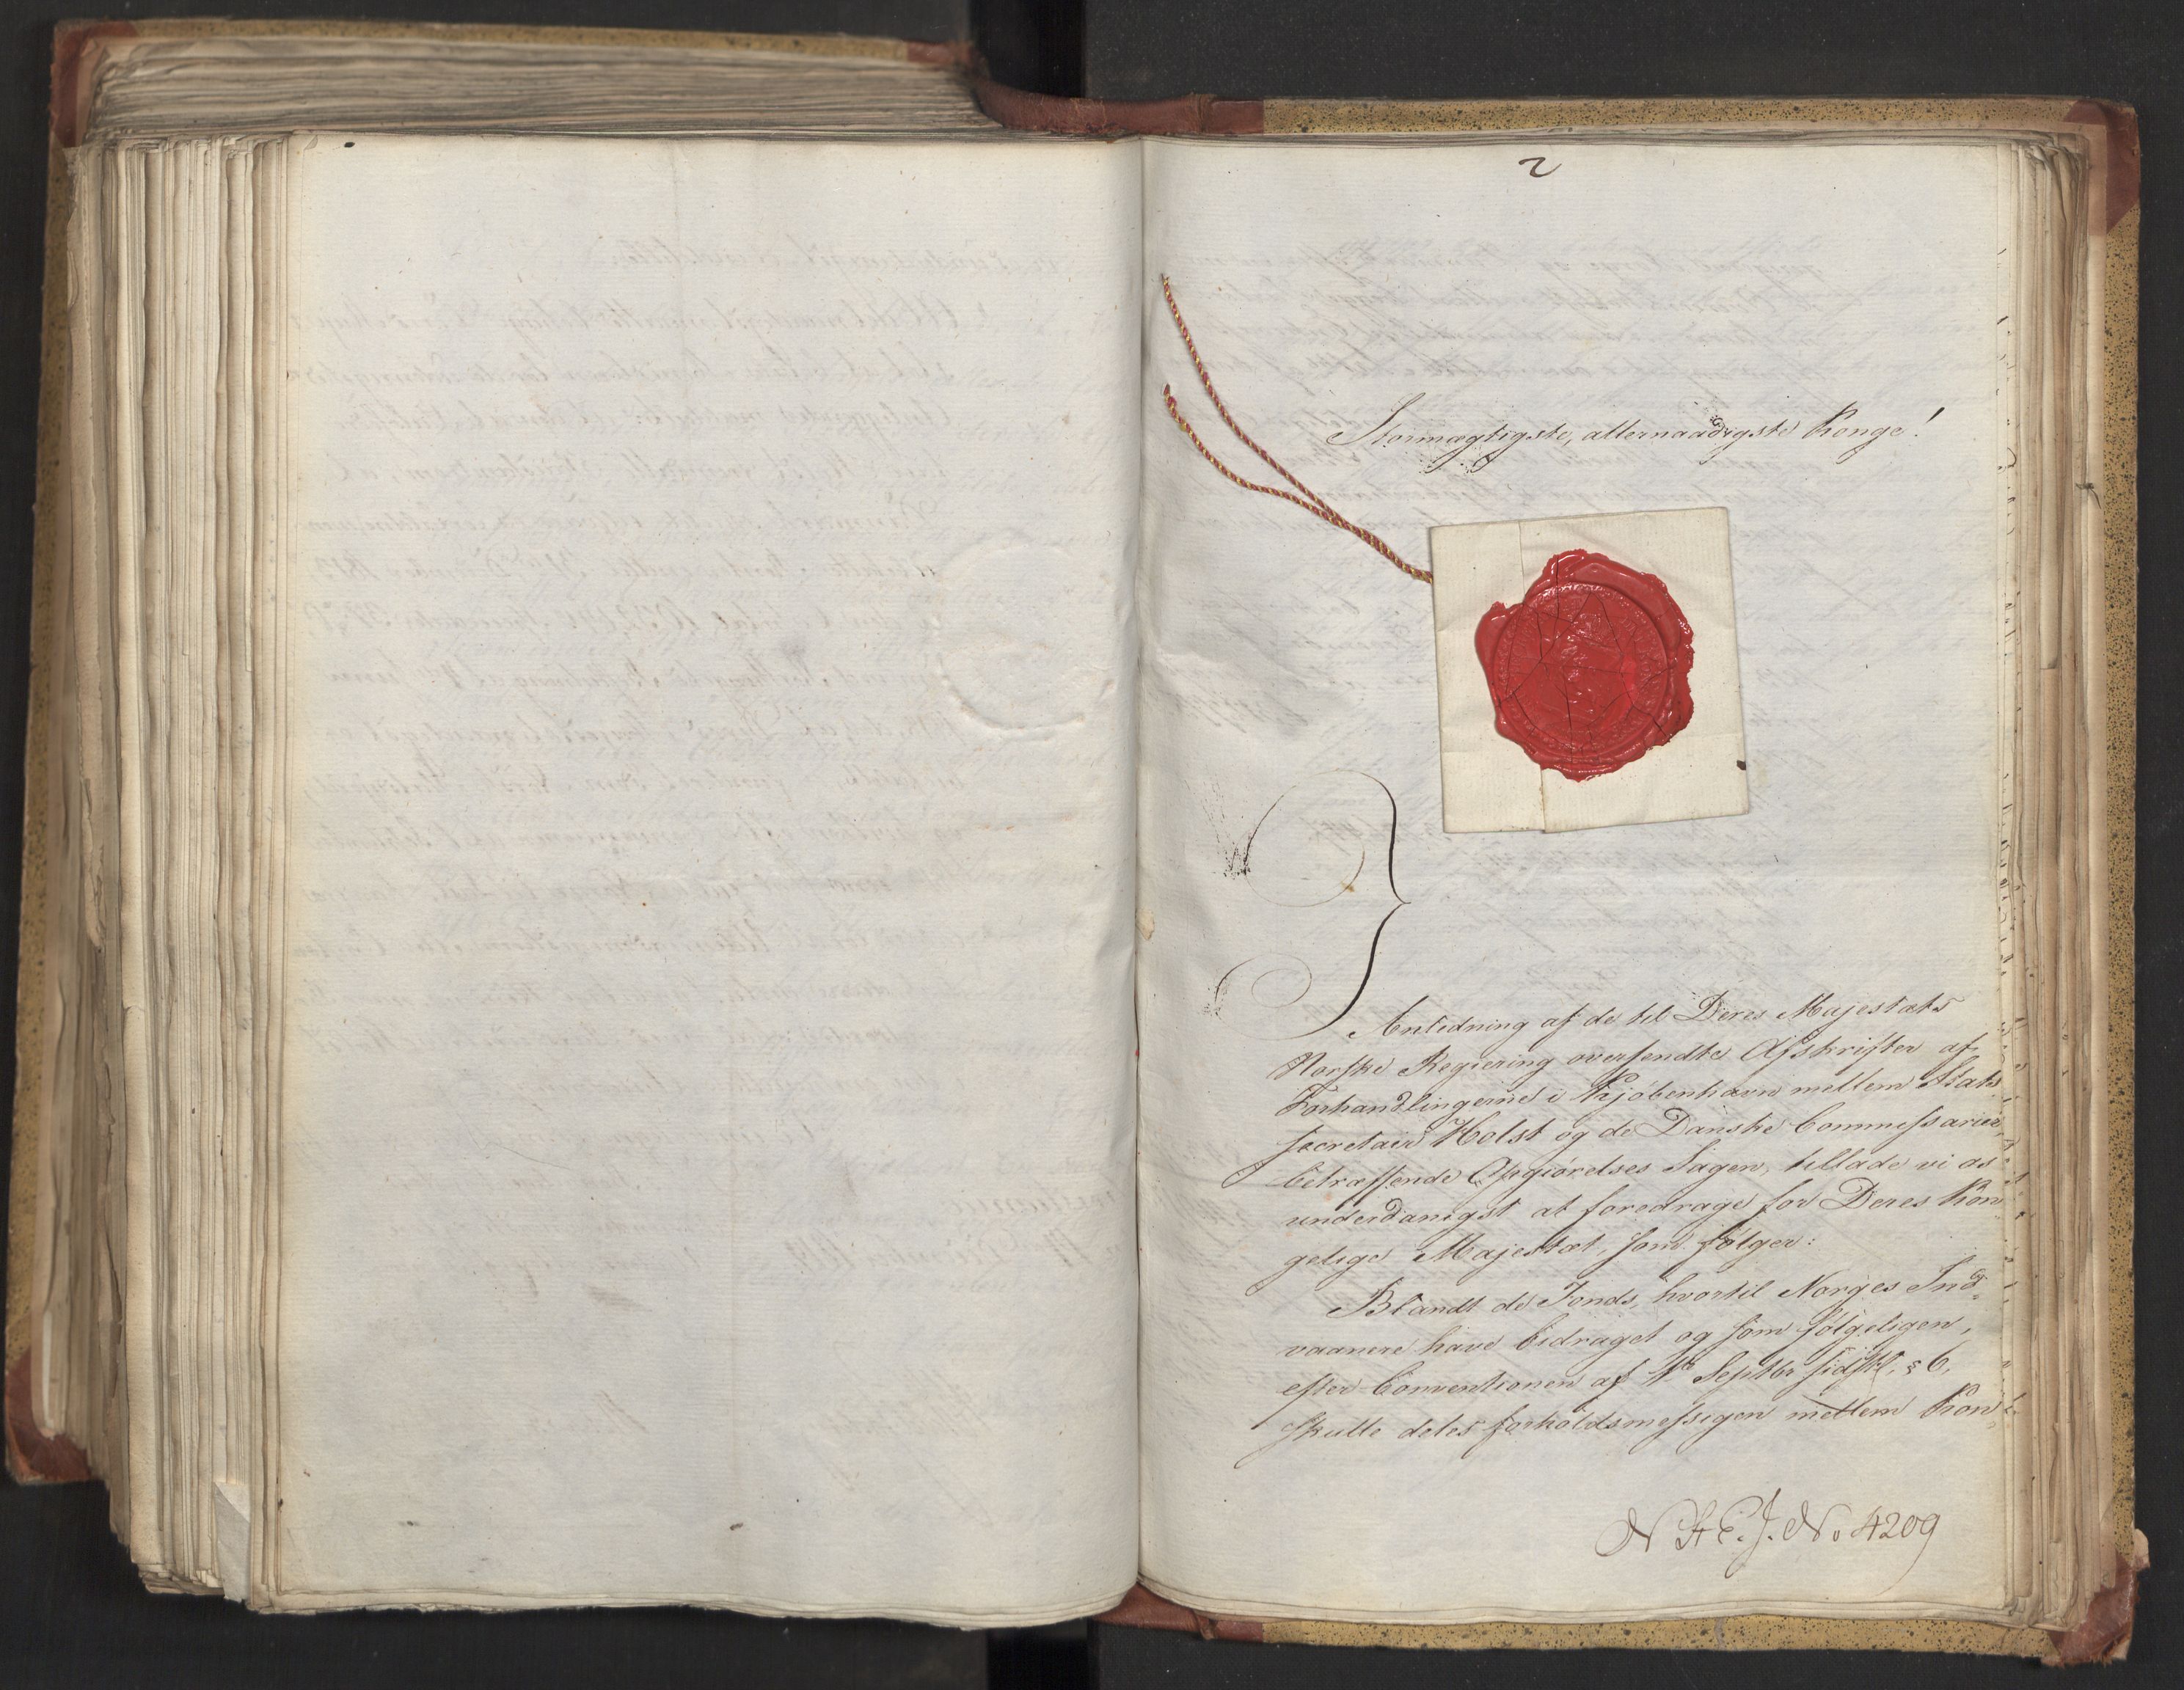 2
Stormægtigste, allernaadigste Konge!
I Anledning af de til Deres Majestæts
Norske Regiering oversendte Afskrifter af
Forhandlingerne i Kjøbenhavn mellem Stats
secretair Holst og de Danske Commissarier,
betræffende Opgiørelses Sagen, tillade vi os
underdanigst at foredrage for Deres Kon
gelige Majestæt, som følger:
Blandt de Fonds, hvortil Norges Ind-
vaanere have bidraget og som følgeligen,
efter Conventionen af 1ste Septbr sidstl. § 6,
skulle deles forholdsmessigen mellem Kon-
N. St. E. J. No 4209